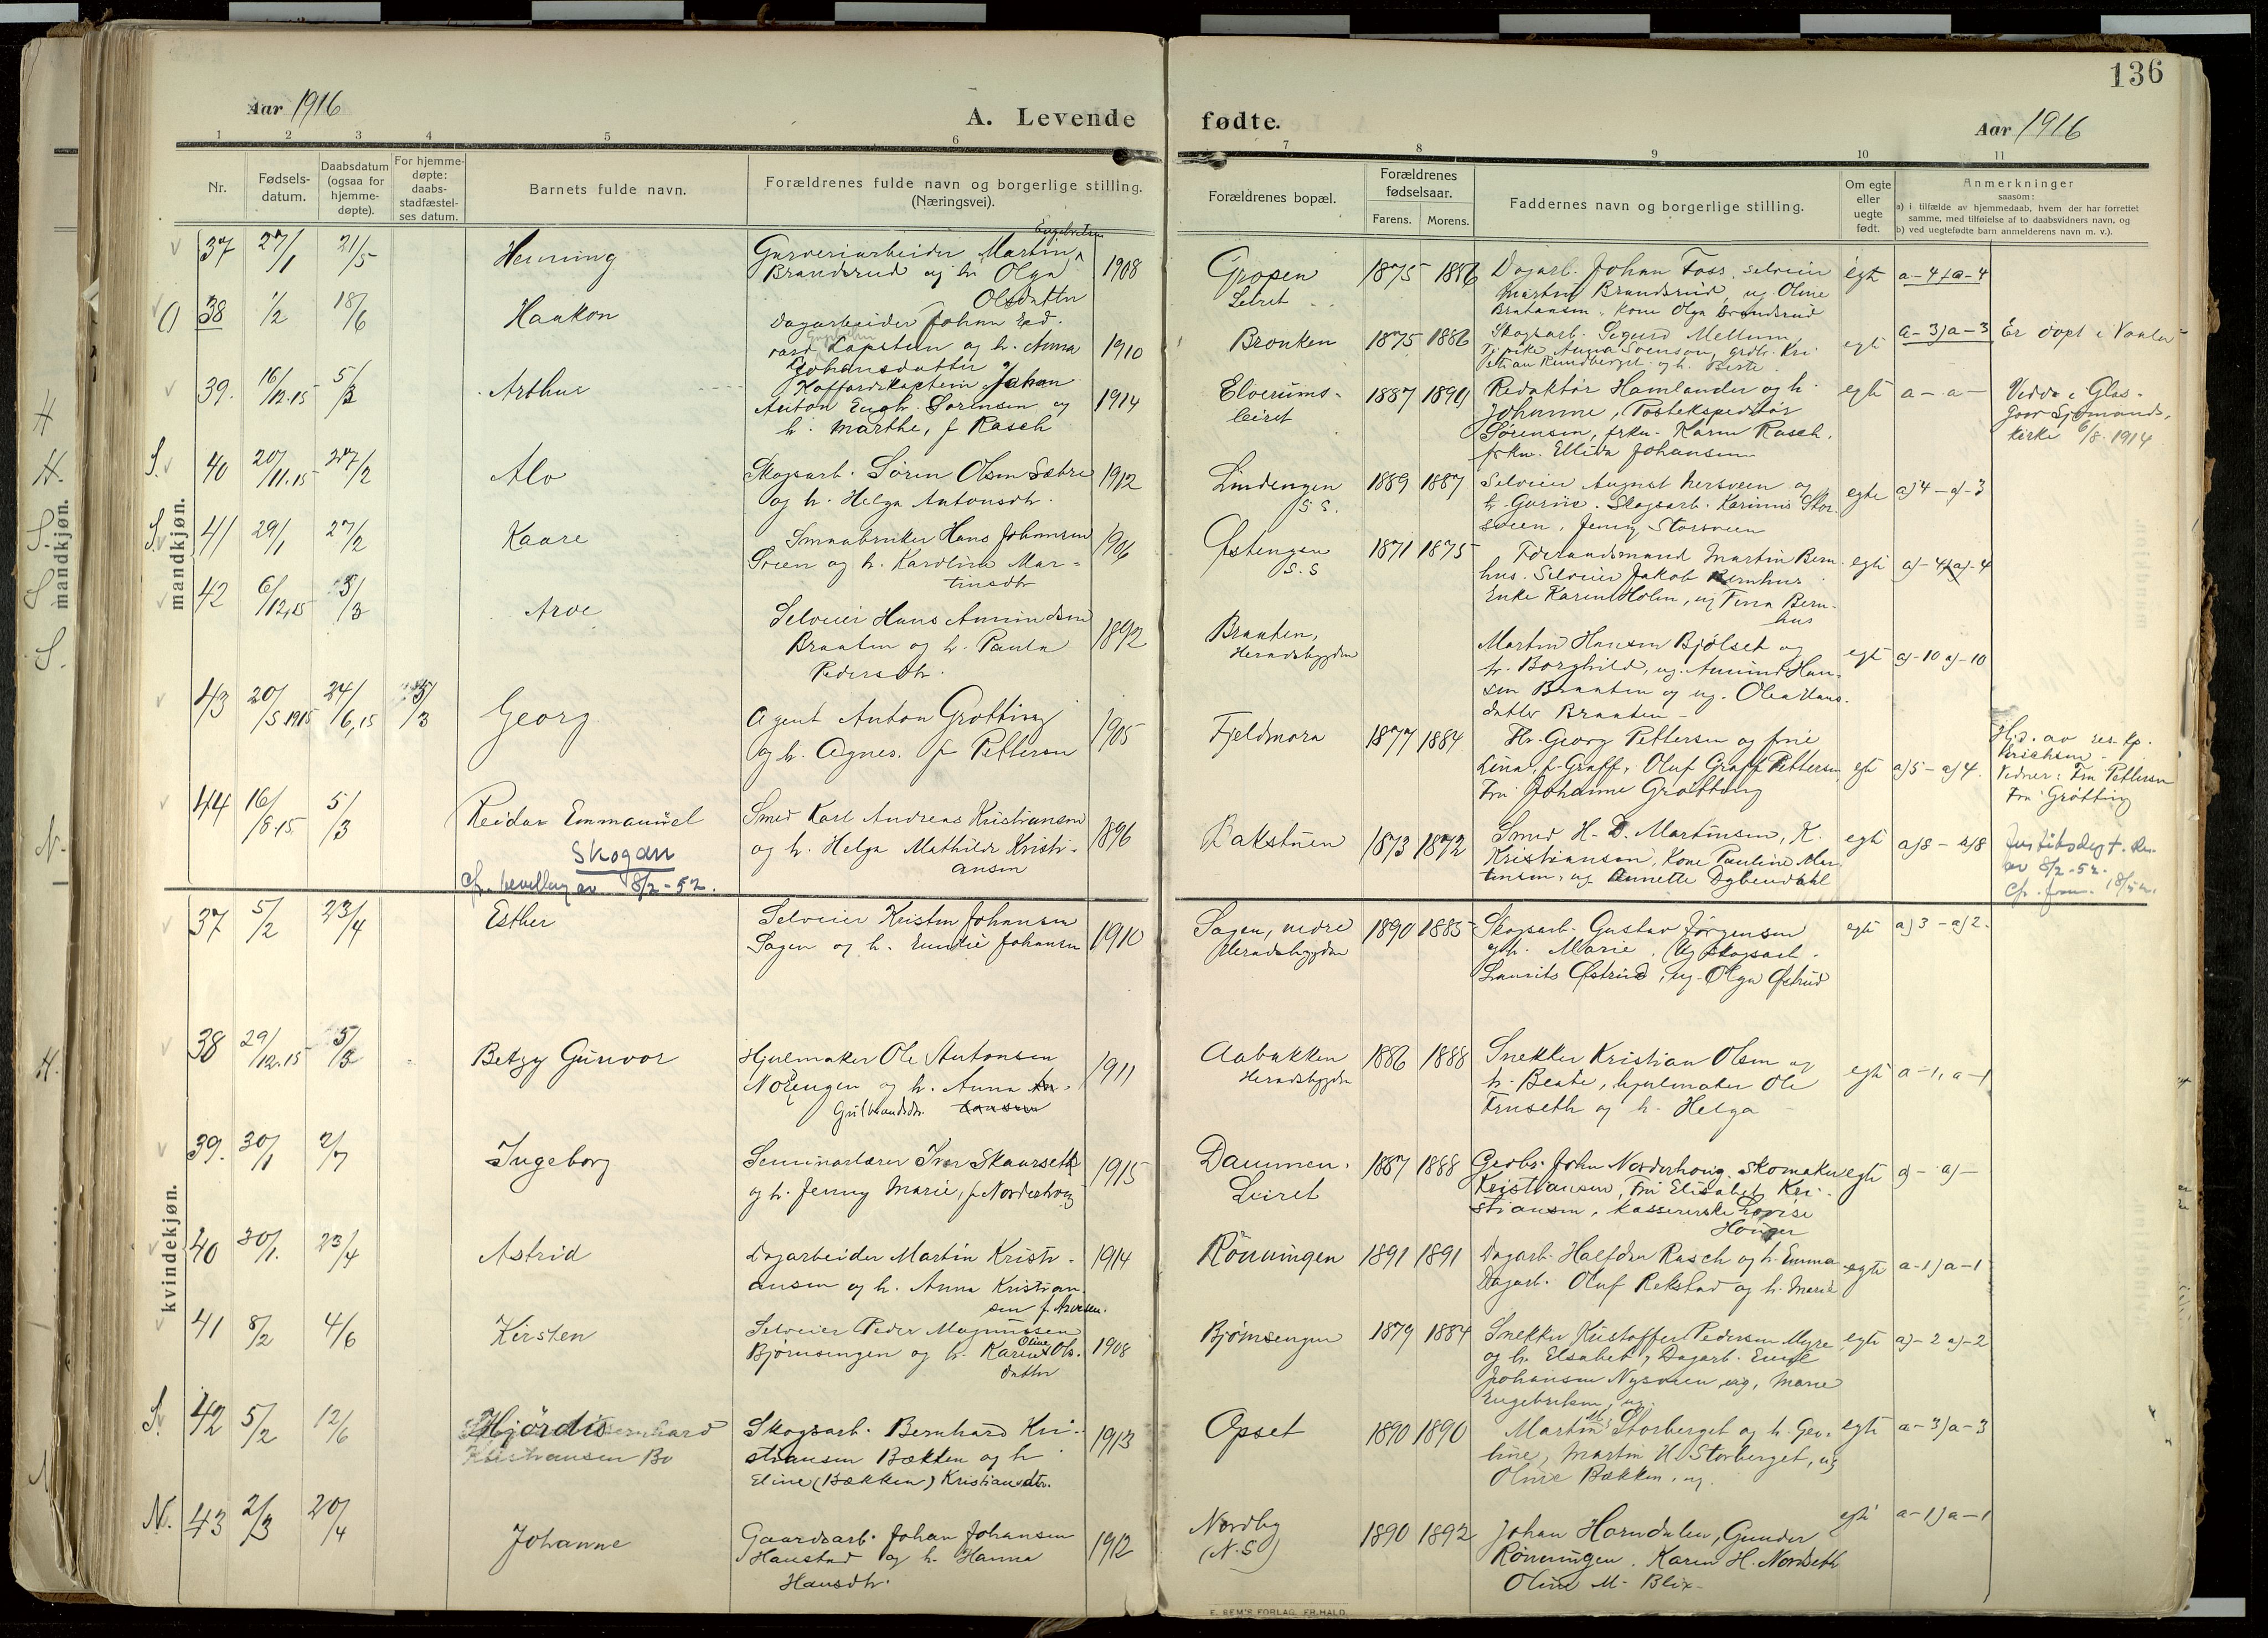 136
Aar 1916
A. Levende
fødte.
Aar 1916
1 2 3 4 5 6 7 8 9 10 11
Nr.
Fødsels-
datum.
Daabsdatum
(ogsaa for
hjemme-
døpte).
For hjemme-
døpte:
daabs-
stadfæstel-
ses datum.
Barnets fulde navn.
Forældrenes fulde navn og borgerlige stilling.
(Næringsvei).
Forældrenes bopæl.
Forældrenes
fødselsaar.
Farens. Morens.
Faddernes navn og borgerlige stilling.
Om egte
eller
uegte
født.
Anmerkninger
saasom:
a) i tilfælde av hjemmedaab, hvem der har forrettet
samme, med tilføielse af to daabsvidners navn, og
b) ved uegtefødte barn anmelderens navn m. v.).
mandkjøn.
37 27/1 21/5 Henning
Engebretsen
Garveriarbeider Martin
Brandsrud og h. Olga
Olsdatter
1908
Gropen
Leiret
1875 1886
Dagarb. Johan Foss, selveier
Martin Brandsrud, ug. Oline
kone Olga Brandsrud
egte a-4) a-4
O 38 1/2 18/6 Haakon
Dagarbeider Johan Ed-
vard Lapsteen og h. Anna
Johansdatter
1910
Bronken
1875 1886
Skogsarb. Sigurd Mellum
Anna Svenson, grdbr. Kri-
stian Rundberget og h. Berte
egte a-3) a-3 Er døpt i Vaaler
39. 16/12.15 5/3 Arthur
Koffardikaptein Johan
Anton Engh. Sørensen og
h. Marthe, f. Rasch
1914
Elverums-
leiret
1887 1890
Redaktør Hamlander og h.
Johanne, Postekspeditør
Sørensen, frkn. Karen Rasch,
frkn. Ellida Johansen
egte a- a-
Viede i Glas-
gow Sjømands-
kirke 6/8 1914
S. 40 20/11.15 27/2 Alv
Skogsarb. Søren Olsen Sætre
og h. Helga Antonsdtr.
1912
Lindengen
S.S.
1889 1887
Selveier August Nersveen og
h. Gurine. Skogsarb. Karinus Stor-
sveen, Jenny Storsveen
egte a) 4 - a) - 3
S. 41 29/1 27/2 Kaare
Smaabruker Hans Johansen
Sveen og h. Karoline Mar-
tinsdtr
1906
Østengen
S.S
1871 1875
Føderaadsmand Martin Bern-
hus. Selveier Jakob Bernhus
Enke Karen Holm, ug Tina Bern-
hus
egte a) - 4 a) - 4
42 6/12.15 5/3 Arve
Selveier Hans Amundsen
Braaten og h. Paula
Pedersdtr.
1892
Braaten,
Heradsbygden
Martin Hansen Bjølset og
h. Borghild, ug. Amund Han-
sen Braaten og ug. Olea Hans-
datter Braaten
egte a) - 10 a) - 10
43 20/5 1915 24/6,15 5/3 Georg
Agent Anton Grøtting
og h. Agnes. f. Petterson
1905
Fjeldmora
1877 1884
Hr. Georg Pettersen og frue
Lina, f. Graff, Oluf Graff Pettersen,
Fru Johanne Grøtting
egte a) 5 - a) 4.
Hjd. av res. kp.
Erichsen
Vidner: Fru Pettersen
Fru Grøtting
44 16/8.15. 5/3 Reidar Emmanuel
Skogan
cfr. bevilling av 8/2 - 52.
Smed Karl Andreas Kristiansen
og h. Helga Mathilde Kristi-
ansen
1896
Bakstuen
1873 1872
Smed H. D. Martinsen, K.
Kristiansen, Kone Pauline Mar-
tinsen, ug Annette Dybendahl
egte a) 8 - a) 8
Justitsdept.
av 8/2-52.
kvindekjøn.
37 5/2 23/4 Esther
Selveier Kristen Johansen
Sagen og h. Emelie Johansen
1910
Sagen, nedre
Heradsbygden
1890 1885
Skogsarb. Gustav Jørgensen
og h. Marie, Ug skogsarb.
Laurits Østrud, ug. Olga Østrud
egte a) 3 - a) 2.
38 29/12.15 5/3 Betzy Gunvor
Hjulmaker Ole Antonsen
Norengen og h. Anna
Gulbrandsdr.
1911
Aabakken
Heradsbygden
1886 1888
Snekker Kristian Olsen og
h. Beate, hjulmaker Ole
Fruseth og h. Helga
egte a-1, a-1
39. 30/1 2/7 Ingeborg
Seminarlærer Iver Skaarseth
og h. Jenny Marie, f. Norderhoug
1915
Dammen,
Leiret
1887 1888
Grdbr. John Norderhoug, skomaker
Kristiansen, Fru Elisabet Kri-
stiansen, kassererske Lovise
Houger
egte a) - a) -
40 30/1. 23/4 Astrid
Dagarbeider Martin Kristi-
ansen og h. Anna Kristian-
sen f. Iversen.
1914
Rønningen
1891 1891
Dagarb. Halfdan Rasch og h. Emma
Dagarb. Oluf Rekstad og h. Marie
egte a-1) a-1
41 8/2 4/6 Kirsten
Selveier Peder Magnussen
Bjørnsengen og h. Karen Oline Ols-
datter
1908
Bjørnsengen
1879 1884
Snekker Kristoffer Pedersen Myre
og h. Elsabet, Dagarb. Emil
Johansen Nysveen, ug, Marie
Engebretsen, ug.
egte a) - 2 a) - 2
S. 42 5/2 12/6 Hjørdis
Skogsarb. Bernhard Kri-
stiansen Bækken og h
Eline (Bækken) Kristiansdtr.
1913
Opset
1890 1890
Martin M. Storberget og h. Geo-
line, Martin H. Storberget, ug
Oline Bækken, ug.
egte a-3) a-3
N. 43 2/3 20/4 Johanne
Gaardsarb. Johan Johansen
Hanstad og h. Hanna
Hansdtr.
1912
Nordby
(N.S)
1890 1892
Johan Horndalen, Gunder
Rønningen. Karen H. Nordseth
Oline M. Blix
egte a-1) a-1
E. SEM'S FORLAG, FR.HALD